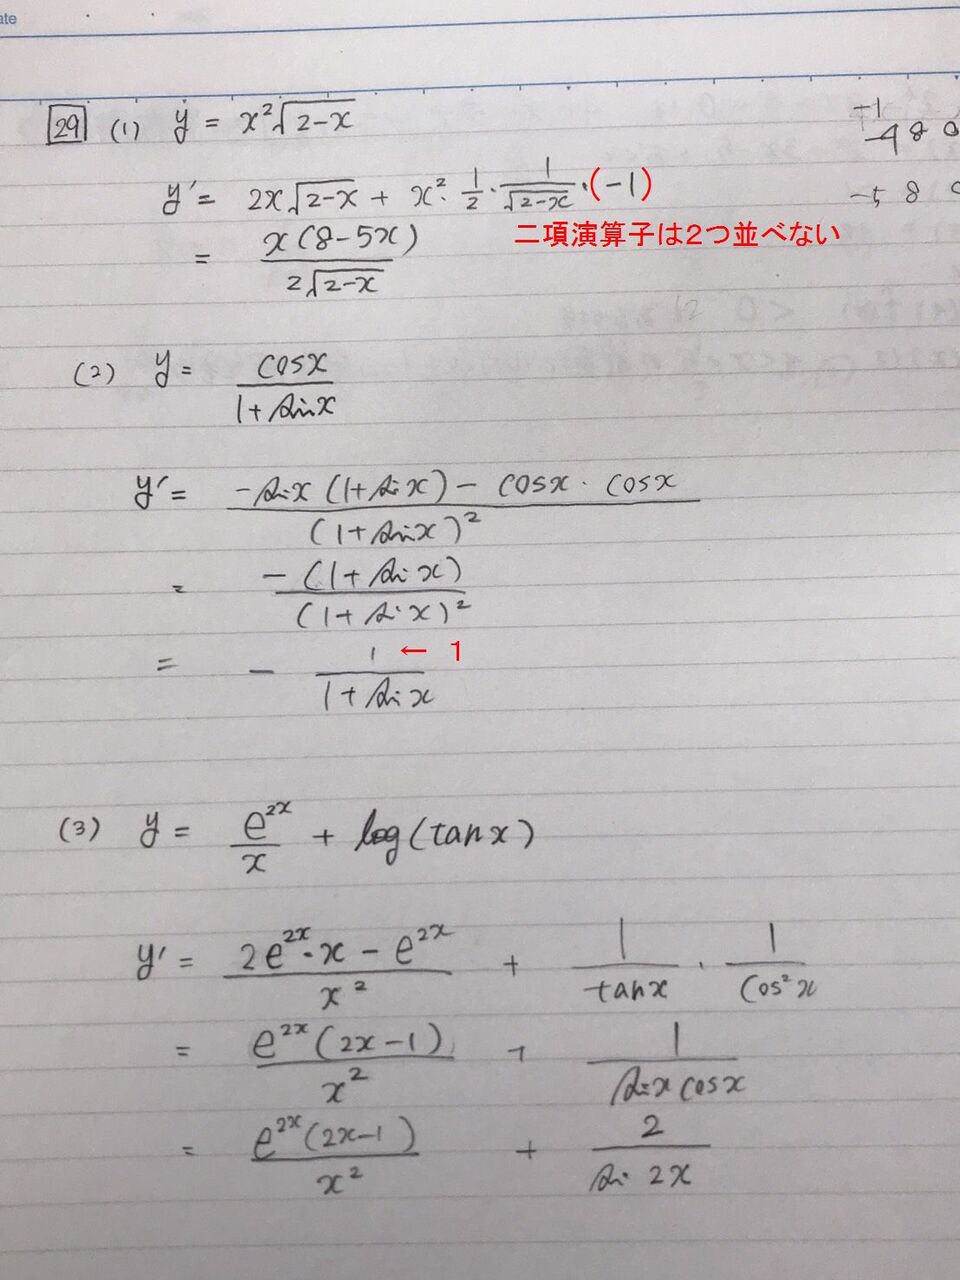 ate
29 (1) y = x²√(2-x)
+1
-4 8 0
y' = 2x√(2-x) + x²・1/2・1/√(2-x)・(-1)
-5 8 0
二項演算子は2つ並べない
= x(8-5x)/2√(2-x)
(2) y = cosx/(1+sinx)
y' = (-sinx(1+sinx) - cosx・cosx)/(1+sinx)²
= -(1+sinx)/(1+sinx)²
= - 1/(1+sinx) ← 1
(3) y = e^{2x}/x + log(tanx)
y' = (2e^{2x}・x - e^{2x})/x² + 1/tanx・1/cos²x
= e^{2x}(2x-1)/x² + 1/(sinx cosx)
= e^{2x}(2x-1)/x² + 2/sin 2x